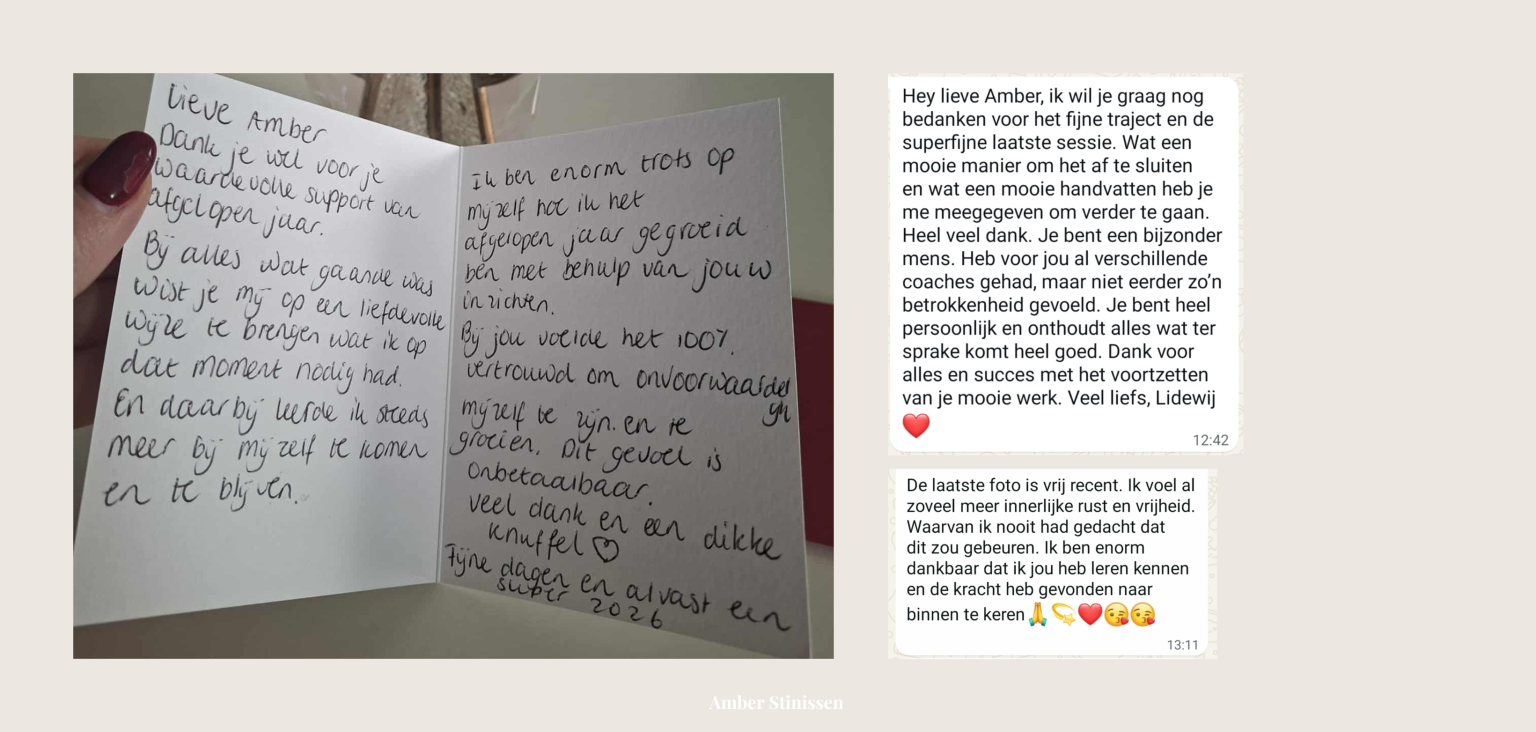 Lieve Amber
Dank je wel voor je
waardevolle support van
afgelopen jaar.
Bij alles wat gaande was
wist je mij op een liefdevolle
wijze te brengen wat ik op
dat moment nodig had.
En daarbij leerde ik steeds
meer bij mijzelf te komen
en te blijven.
Ik ben enorm trots op
mijzelf hoe ik het
afgelopen jaar gegroeid
ben met behulp van jouw
inzichten.
Bij jou voelde het 100%
vertrouwd om onvoorwaardel
ijk
mijzelf te zijn. en te
groeien. Dit gevoel is
onbetaalbaar.
veel dank en een dikke
knuffel ♡
Fijne dagen en alvast een
super 2026
Hey lieve Amber, ik wil je graag nog
bedanken voor het fijne traject en de
superfijne laatste sessie. Wat een
mooie manier om het af te sluiten
en wat een mooie handvatten heb je
me meegegeven om verder te gaan.
Heel veel dank. Je bent een bijzonder
mens. Heb voor jou al verschillende
coaches gehad, maar niet eerder zo’n
betrokkenheid gevoeld. Je bent heel
persoonlijk en onthoudt alles wat ter
sprake komt heel goed. Dank voor
alles en succes met het voortzetten
van je mooie werk. Veel liefs, Lidewij
❤️
12:42
De laatste foto is vrij recent. Ik voel al
zoveel meer innerlijke rust en vrijheid.
Waarvan ik nooit had gedacht dat
dit zou gebeuren. Ik ben enorm
dankbaar dat ik jou heb leren kennen
en de kracht heb gevonden naar
binnen te keren🙏💫❤️😘😘
13:11
Amber Stinissen